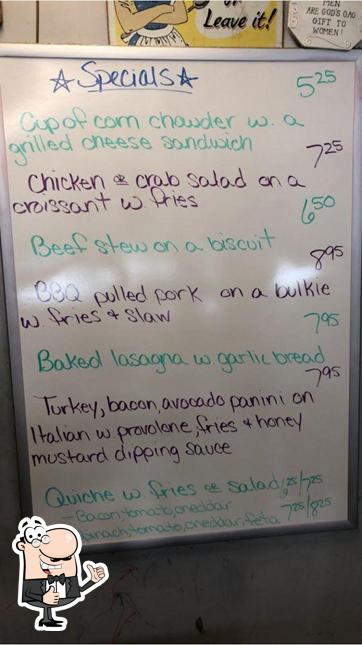 Leave it!
MEN
ARE GOD'S
GIFT TO
WOMEN!
☆Specials☆
5 25
Cup of corn chowder w. a
grilled cheese sandwich
7 25
Chicken or crab salad on a
croissant w. fries
6 50
Beef stew on a biscuit
8 95
BBQ pulled pork on a bulkie
w. fries + slaw
7 95
Baked lasagna w. garlic bread
7 95
Turkey, bacon, avocado panini on
Italian w. provolone, fries + honey
mustard dipping sauce
Quiche w. fries or salad
- Bacon, tomato, cheddar 7 25/8 25
tomato, cheddar, feta